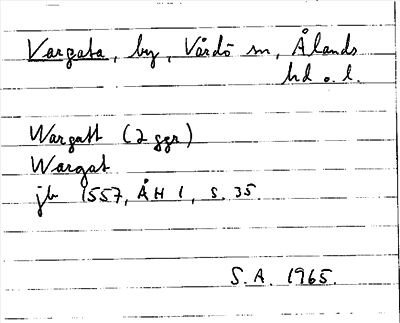 Vargata, by, Vårdö sn, Ålands
hd o. l.
Wargatt (2 ggr)
Wargat
jb 1557, ÅH 1, s. 35.
S.A. 1965.